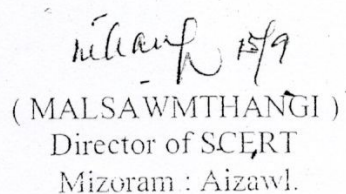 15/9
( MALSAWMTHANGI )
Director of SCERT
Mizoram : Aizawl.